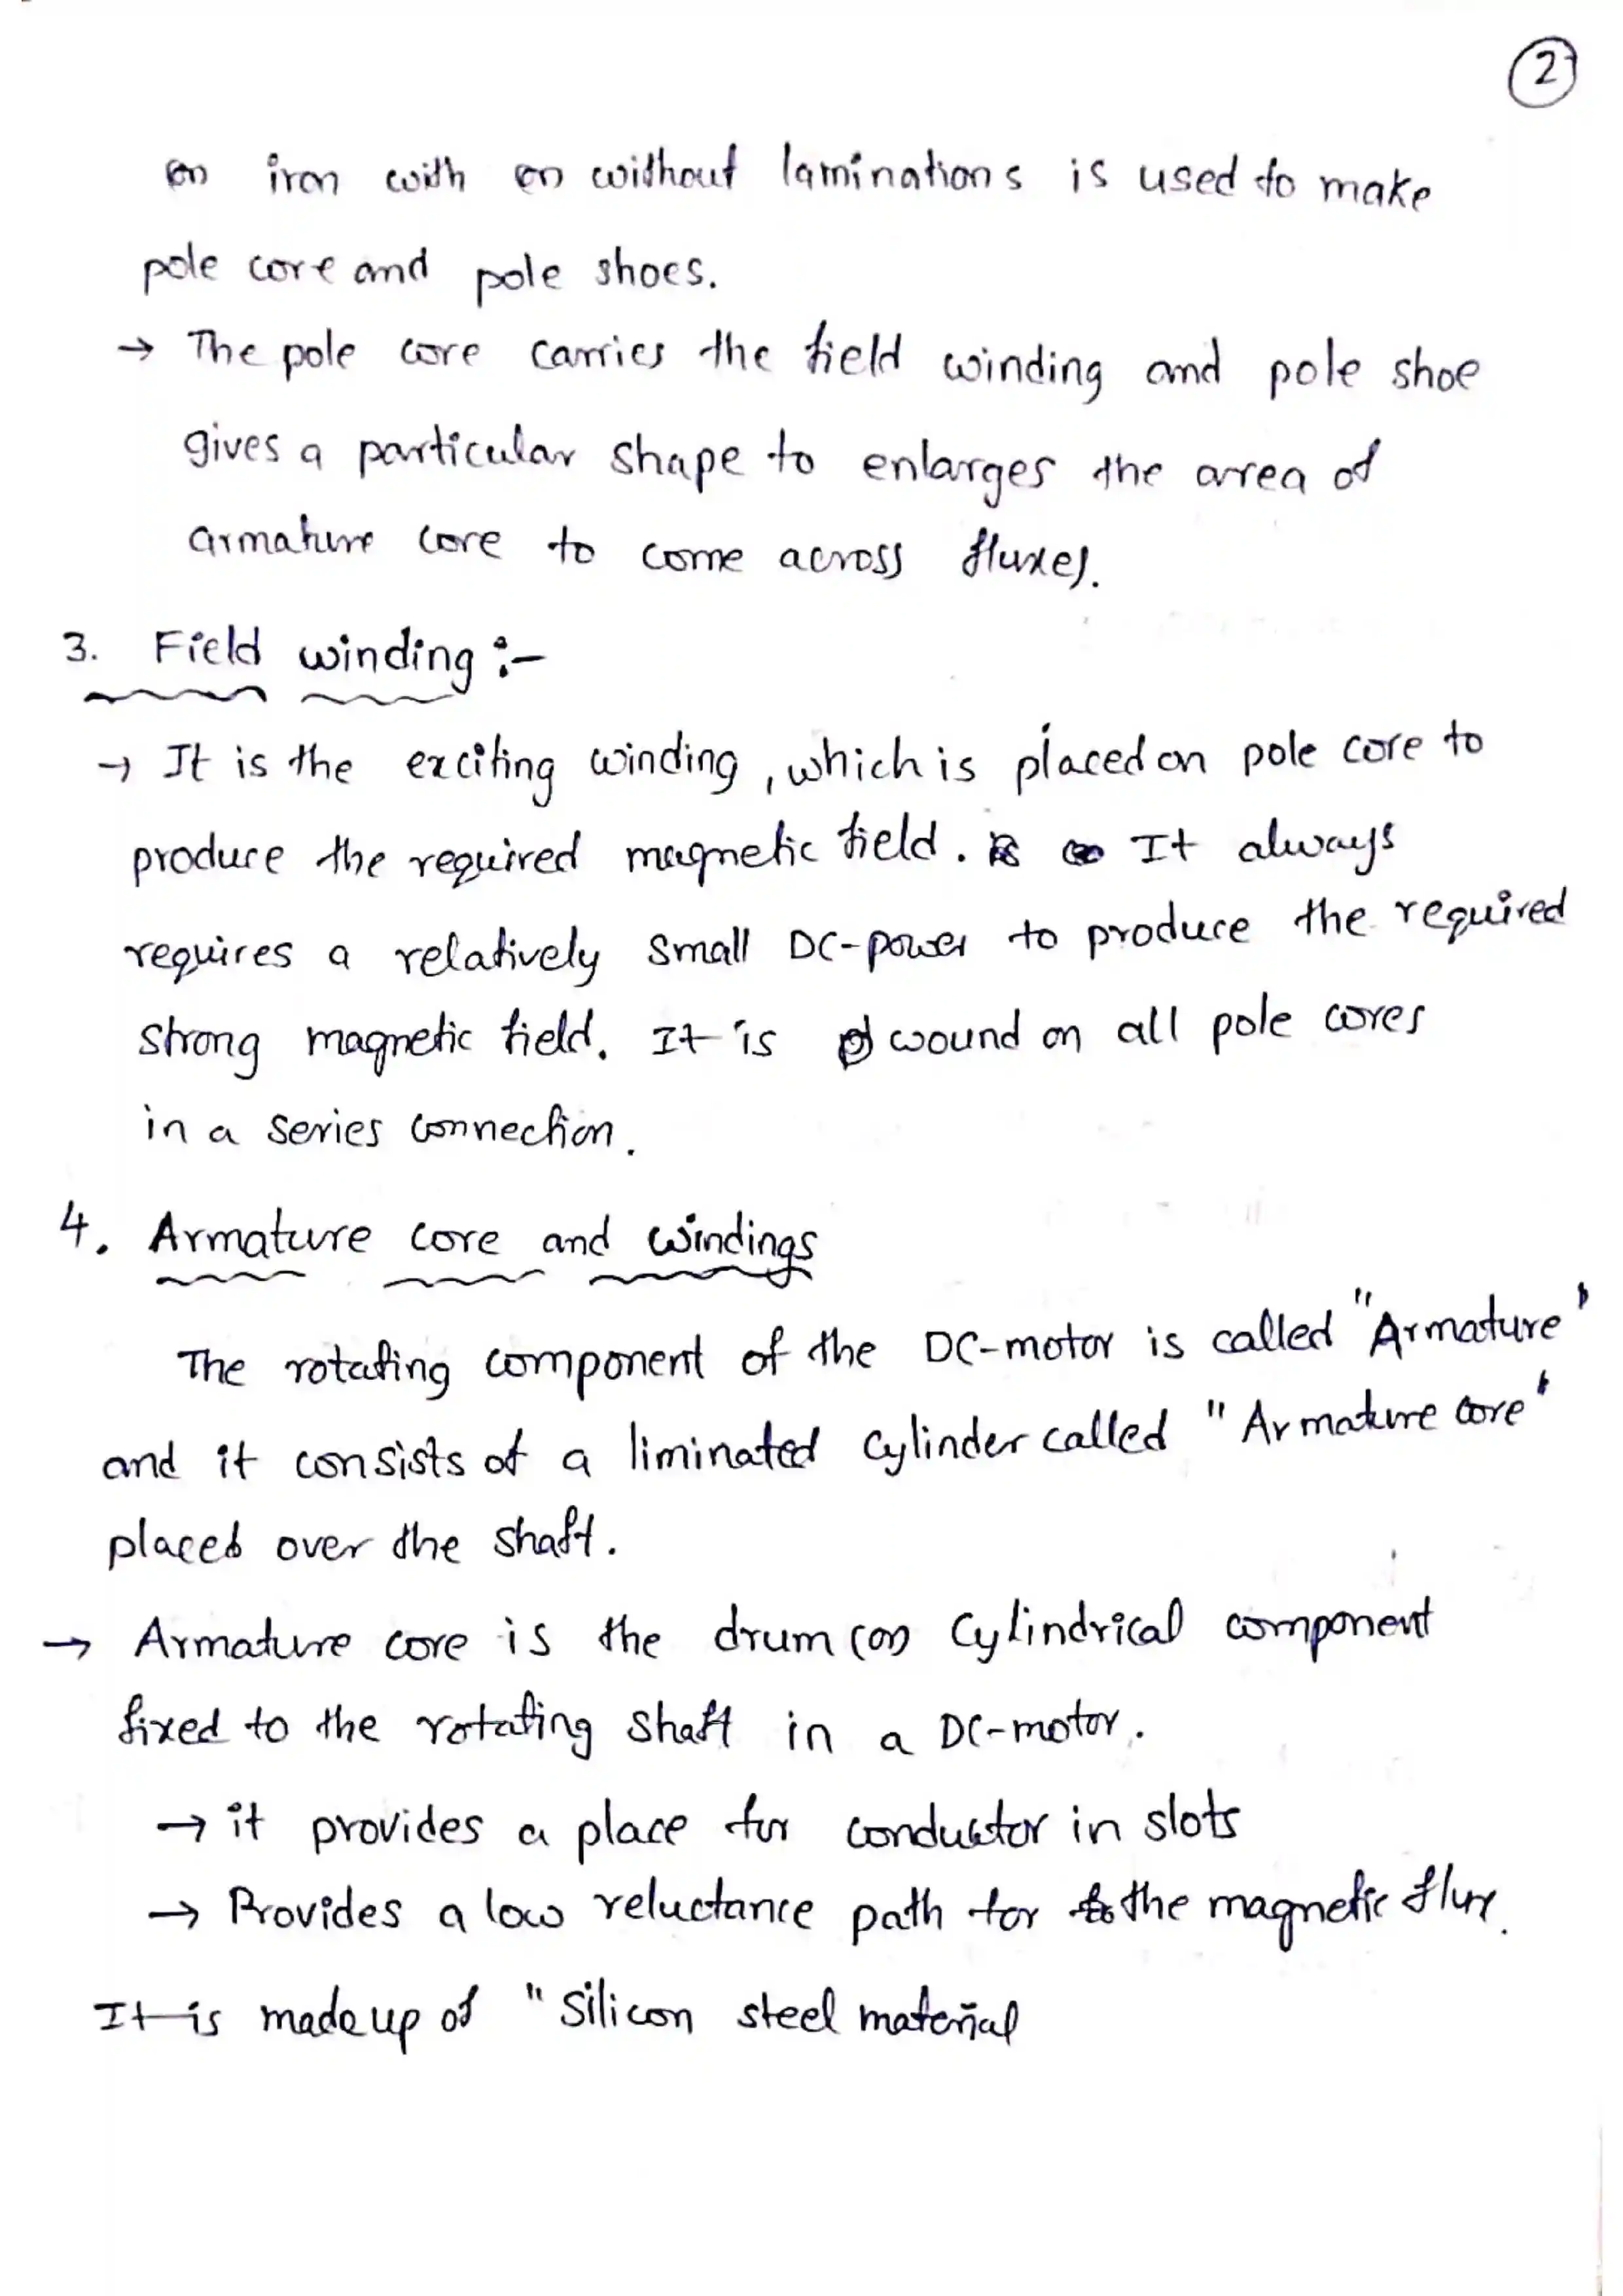 2
(or) iron with (or) without laminations is used to make
pole core and pole shoes.
→ The pole core carries the field winding and pole shoe
gives a particular shape to enlarges the area of
armature core to come across fluxes.
3. Field winding :-
→ It is the exciting winding, which is placed on pole core to
produce the required magnetic field. It always
requires a relatively small DC-power to produce the required
strong magnetic field. It is wound on all pole cores
in a series connection.
4. Armature core and windings
The rotating component of the DC-motor is called "Armature"
and it consists of a liminated cylinder called "Armature core"
placed over the shaft.
→ Armature core is the drum (or) Cylindrical component
fixed to the rotating shaft in a DC-motor.
→ it provides a place for conductor in slots
→ Provides a low reluctance path for the magnetic flux.
It is made up of "Silicon steel material